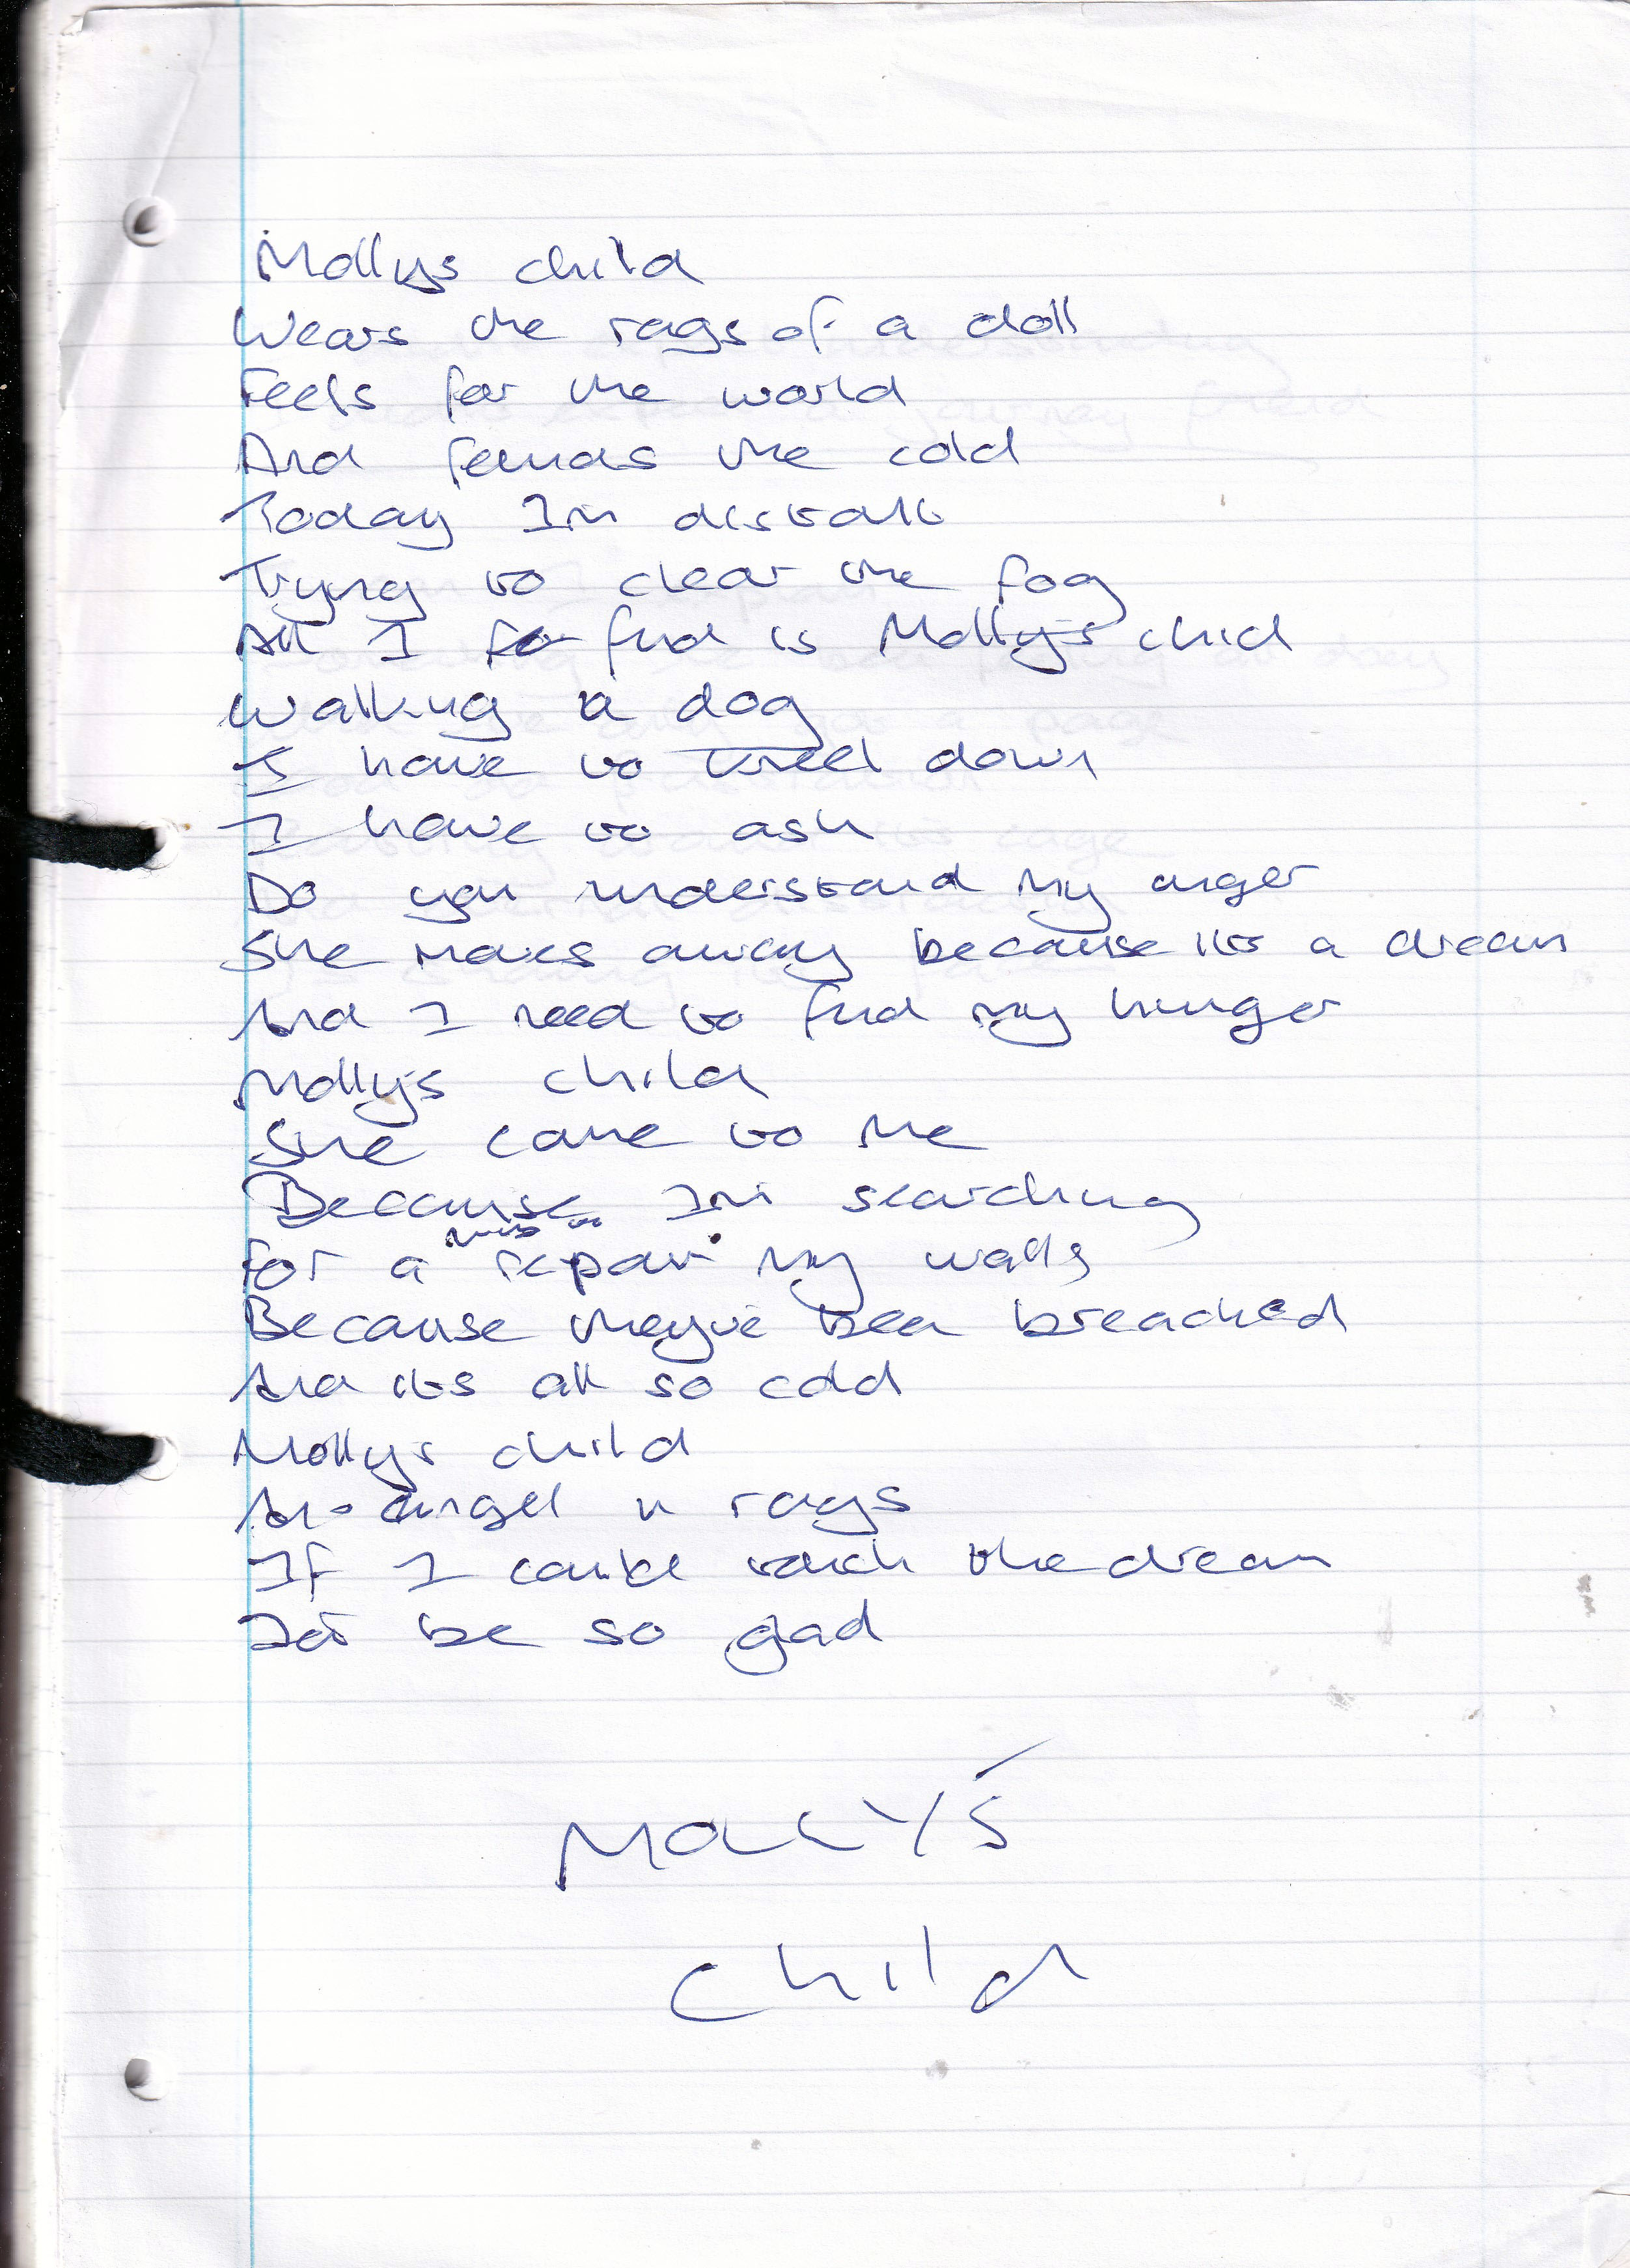 Mollys child
Wears the rags of a doll
Feels for the world
And founds the cold
Today Im distant
Trying to clear the fog
All I find is Molly's child
Walking a dog
I have to kneel down
I have to ask
Do you understand my anger
She moves away because its a dream
And I need to find my hunger
Molly's child
She came to me
Because Im searching
For a repair my walls
Because theyve been breached
And its all so cold
Mollys child
An angel in rags
If I could touch the dream
Id be so glad
MOLLY'S
child